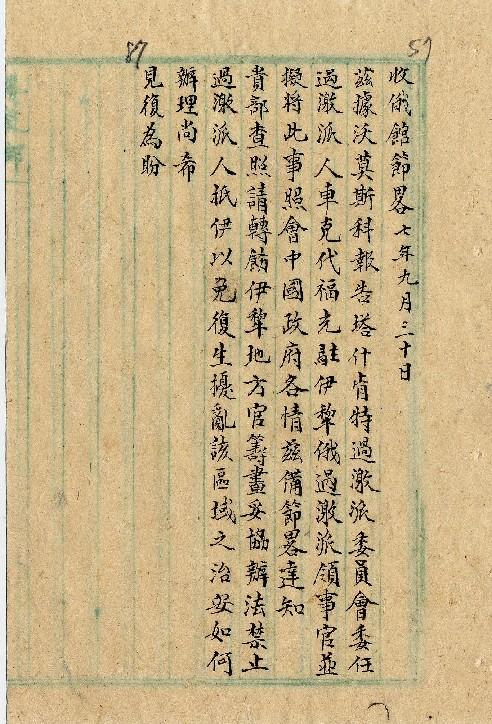 59
87
收俄館節畧 七年九月三十日
茲據沃莫斯科報告塔什肯特過激派委員會委任
過激派人車克代福克駐伊犂俄過激派領事官並
擬將此事照會中國政府各情茲備節畧達知
貴部查照請轉飭伊犂地方官籌畫妥協辦法禁止
過激派人抵伊以免復生擾亂該區域之治安如何
辦理尚希
見復為盼